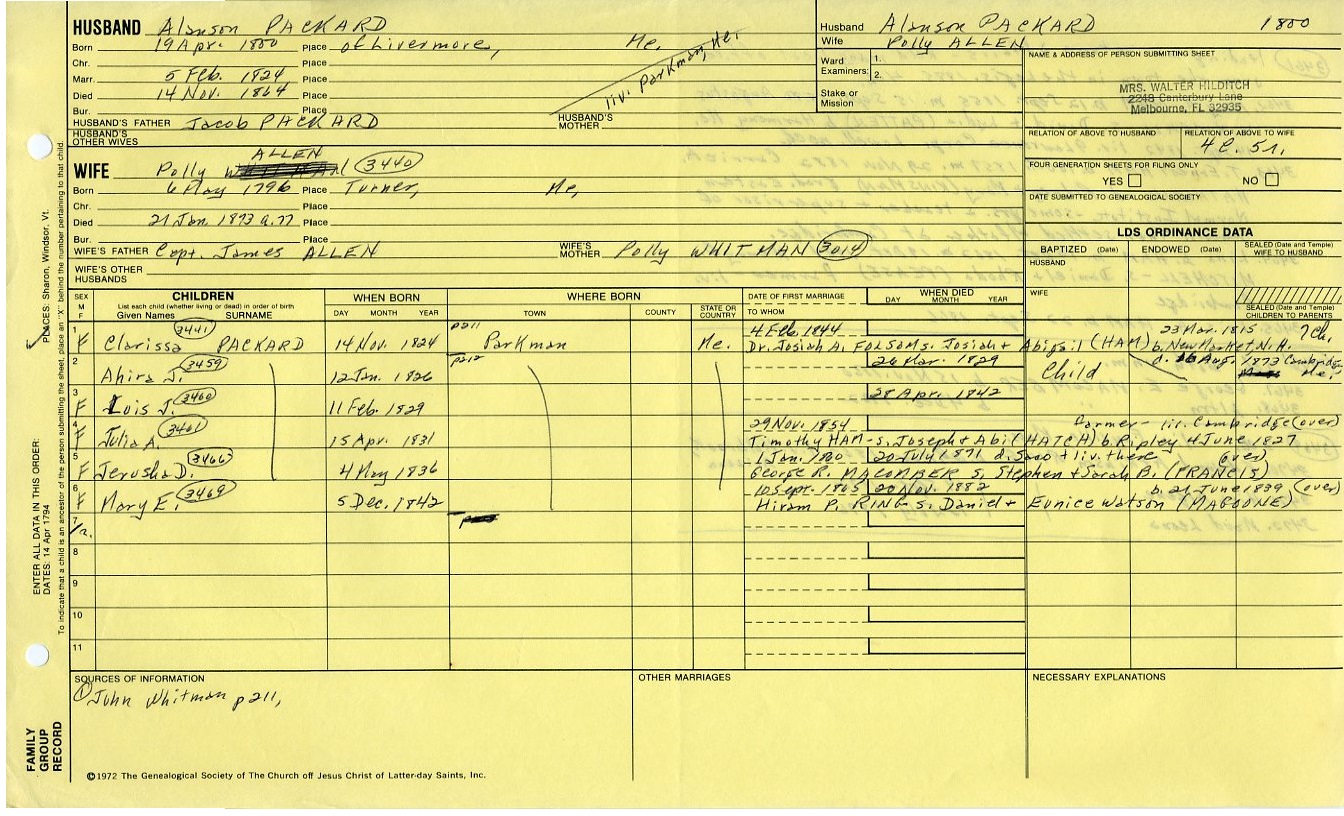 HUSBAND Alanson PACKARD
Born 19 Apr. 1800 Place of Livermore, Me.
Chr. Place
Marr. 5 Feb. 1824 Place
Died 14 Nov. 1864 Place
Bur. Place
liv. Parkman, Me.
HUSBAND'S FATHER Jacob PACKARD HUSBAND'S MOTHER:
HUSBAND'S OTHER WIVES
Husband Alanson PACKARD 1800
Wife Polly ALLEN
Ward Examiners: 1.
2.
Stake or Mission
NAME & ADDRESS OF PERSON SUBMITTING SHEET
MRS. WALTER HILDITCH
2248 Canterbury Lane
Melbourne, FL 32935
RELATION OF ABOVE TO HUSBAND RELATION OF ABOVE TO WIFE
4C. 5r.
FOUR GENERATION SHEETS FOR FILING ONLY
YES NO
DATE SUBMITTED TO GENEALOGICAL SOCIETY
WIFE Polly ALLEN 3440
Born 6 May 1796 Place Turner, Me,
Chr. Place
Died 21 Jan. 1873 a.77 Place
Bur. Place
WIFE'S FATHER Capt. James ALLEN WIFE'S MOTHER Polly WHITMAN 3014
WIFE'S OTHER HUSBANDS
LDS ORDINANCE DATA
BAPTIZED (Date) ENDOWED (Date) SEALED (Date and Temple) WIFE TO HUSBAND
HUSBAND
WIFE
SEALED (Date and Temple) CHILDREN TO PARENTS
SEX M F CHILDREN List each child (whether living or dead) in order of birth Given Names SURNAME WHEN BORN DAY MONTH YEAR WHERE BORN TOWN COUNTY STATE OR COUNTRY DATE OF FIRST MARRIAGE TO WHOM WHEN DIED DAY MONTH YEAR
1 3441 p211 4 Feb. 1844 23 Mar. 1815 7Ch.
F Clarissa PACKARD 14 Nov. 1824 Parkman Me. Dr. Josiah A. FOLSOM s. Josiah + Abigail (HAM) b. New Market, N.H.
2 3459 p212 26 Mar. 1829 d. 16 Aug. 1873 Cambridge, Me.
Ahira J. 12 Jan. 1826 Child
3 3460
F Lois J. 11 Feb. 1829 28 Apr. 1842
4 3461 29 Nov. 1854 farmer - liv. Cambridge (over)
F Julia A. 15 Apr. 1831 Timothy HAM - s. Joseph + Abi (HATCH) b. Ripley 4 June 1827
5 3466 1 Jan. 1860 20 July 1871 d. Saco + liv. there (over)
F Jerusha D. 4 May 1836 George R. MACOMBER s. Stephen + Sarah B. (FRANCIS)
6 3469 10 Sept. 1865 20 Nov. 1882 b. 21 June 1839 (over)
F Mary E. 5 Dec. 1842 Hiram P. RING - s. Daniel + Eunice Watson (MAGOONE)
7
8
9
10
11
SOURCES OF INFORMATION
① John Whitman p211,
OTHER MARRIAGES
NECESSARY EXPLANATIONS
©1972 The Genealogical Society of The Church off Jesus Christ of Latter-day Saints, Inc.
FAMILY GROUP RECORD
ENTER ALL DATA IN THIS ORDER:
DATES: 14 Apr 1794
PLACES: Sharon, Windsor, Vt.
To indicate that a child is an ancestor of the person submitting the sheet, place an "X" behind the number pertaining to that child.